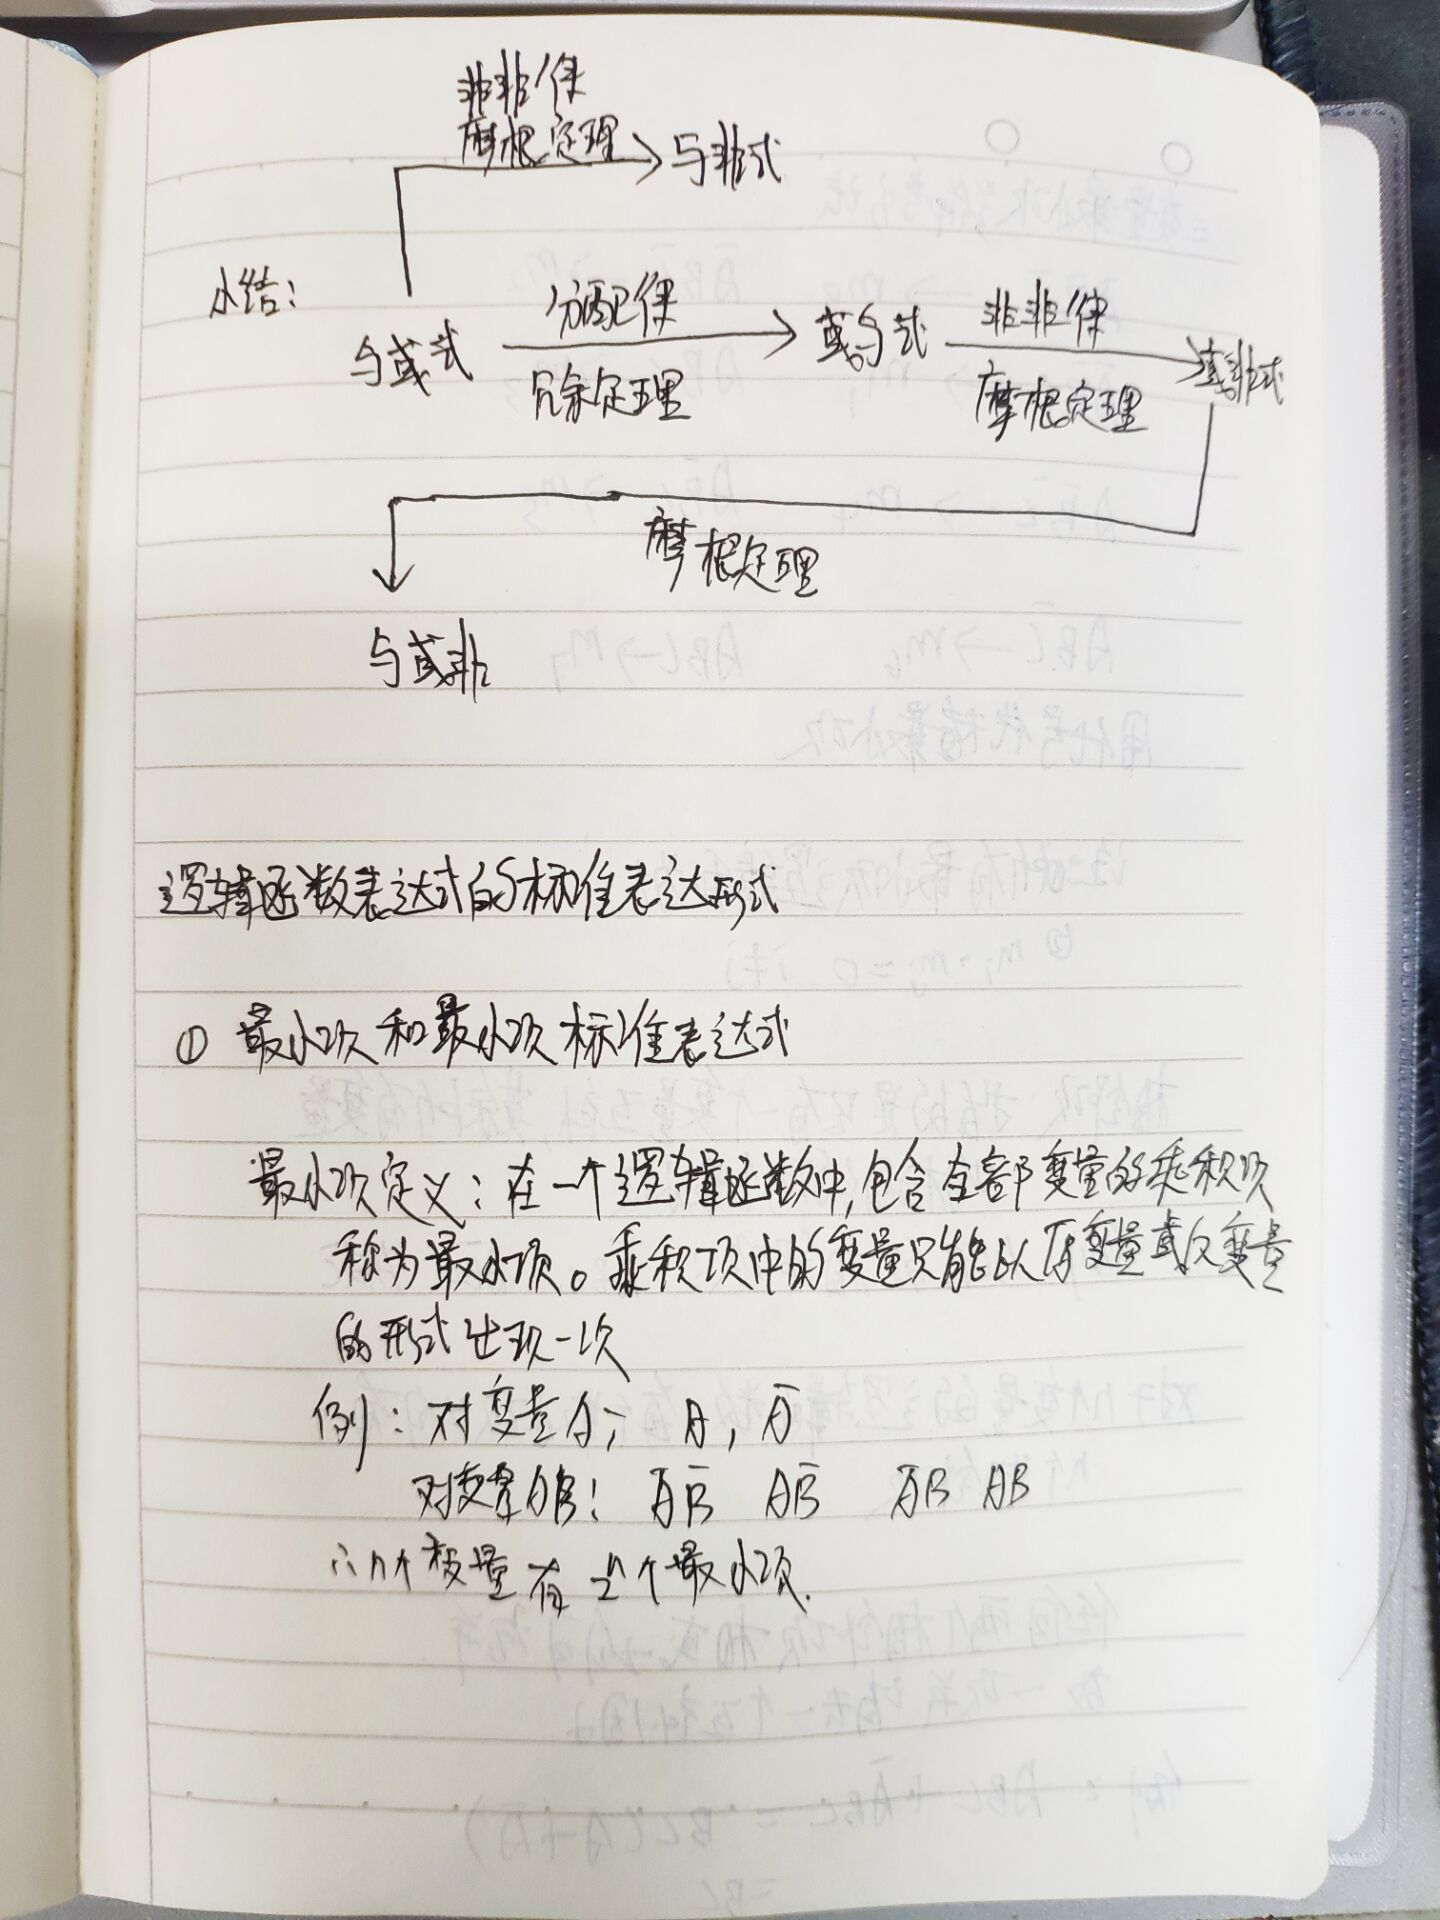 非非律
摩根定理
与非式
小结:
与或式
分配律
冗余定理
或与式
非非律
摩根定理
或非式
摩根定理
与或非
逻辑函数表达式的标准表达形式
① 最小项和最小项标准表达式
最小项定义:在一个逻辑函数中,包含全部变量的乘积项
称为最小项。乘积项中的变量只能以原变量或反变量
的形式出现一次
例:对变量A; A, A̅
对变量AB: A̅B̅ AB̅ A̅B AB
∴n个变量有2ⁿ个最小项.